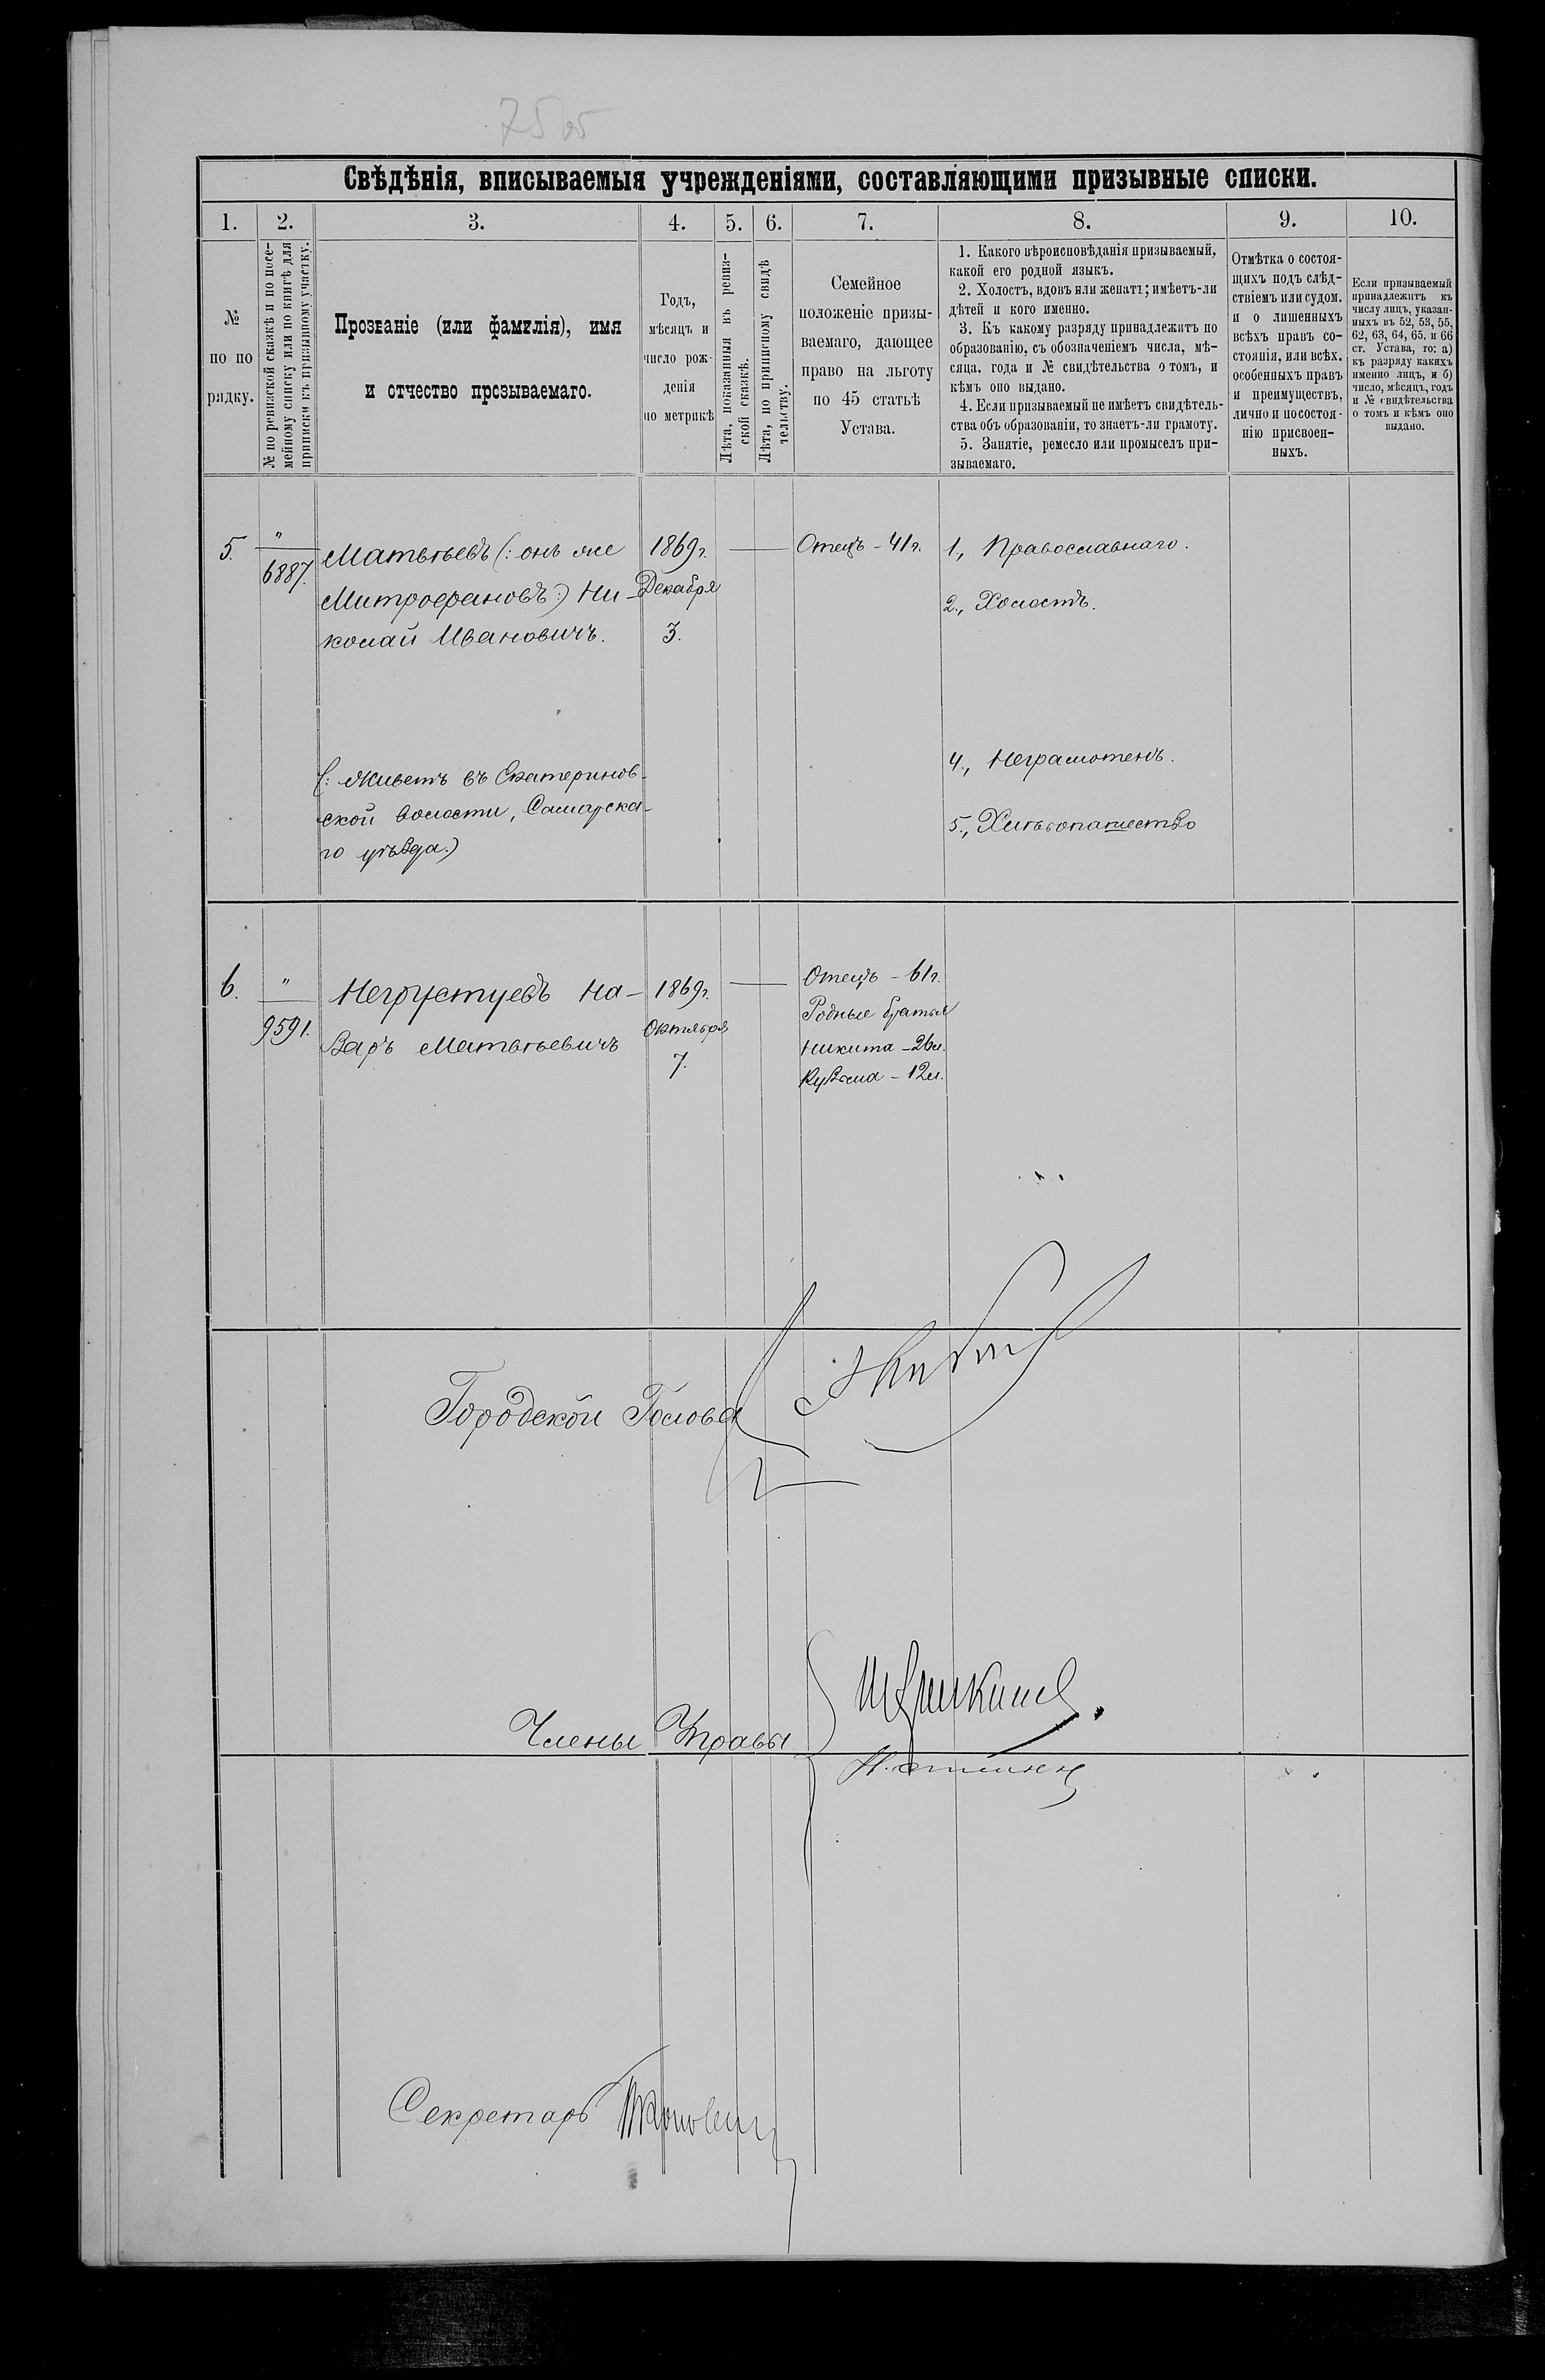 Свѣдѣнія, вписываемыя учрежденіями, составляющими призывные списки.
1. 2. 3. 4. 5. 6. 7. 8. 9. 10.
№
по по
рядку.
№ по ревизской сказкѣ и по посе-
мейному списку или по книгѣ для
приписки къ призывному участку.
Прозваніе (или фамилія), имя
и отчество прозываемаго.
Годъ,
мѣсяцъ и
число рож-
денія
по метрикѣ
Лѣта, показанныя въ ревиз-
ской сказкѣ.
Лѣта, по приписному свидѣ
тельству.
Семейное
положеніе призы-
ваемаго, дающее
право на льготу
по 45 статьѣ
Устава.
1. Какого вѣроисповѣданія призываемый,
какой его родной языкъ.
2. Холостъ, вдовъ или женатъ; имѣетъ-ли
дѣтей и кого именно.
3. Къ какому разряду принадлежитъ по
образованію, съ обозначеніемъ числа, мѣ-
сяца, года и № свидѣтельства о томъ, и
кѣмъ оно выдано.
4. Если призываемый не имѣетъ свидѣтель-
ства объ образованіи, то знаетъ-ли грамоту.
5. Занятіе, ремесло или промыселъ при-
зываемаго.
Отмѣтка о состоя-
щихъ подъ слѣд-
ствіемъ или судом.
и о лишенныхъ
всѣхъ правъ со-
стоянія, или всѣх.
особенныхъ правъ
и преимуществъ,
лично и по состоя-
нію присвоен-
ныхъ.
Если призываемый
принадлежитъ къ
числу лицъ, указан-
ныхъ въ 52, 53, 55,
62, 63, 64, 65. и 66
ст. Устава, то: а)
къ разряду какихъ
именно лицъ, и б)
число, мѣсяцъ, годъ
и № свидѣтельства
о томъ и кѣмъ оно
выдано.
5. "
6887.
Матвѣевъ (: онъ же
Митрофановъ:) Ни-
колай Ивановичъ.
1869г.
Декабря
3.
Отецъ - 41г.
1, Православнаго.
2., Холостъ.
(: Живетъ въ Екатеринов-
ской волости, Самарска-
го уѣзда:)
4., Неграмотенъ.
5., Хлѣбопашество
6. "
9591.
Негрустуевъ На-
заръ Матвѣевичъ
1869г.
Октября
7.
Отецъ - 61г.
Родные братья
Никита - 26л.
Кузьма - 12л.
Городской Голова
Члены Управы
Секретарь